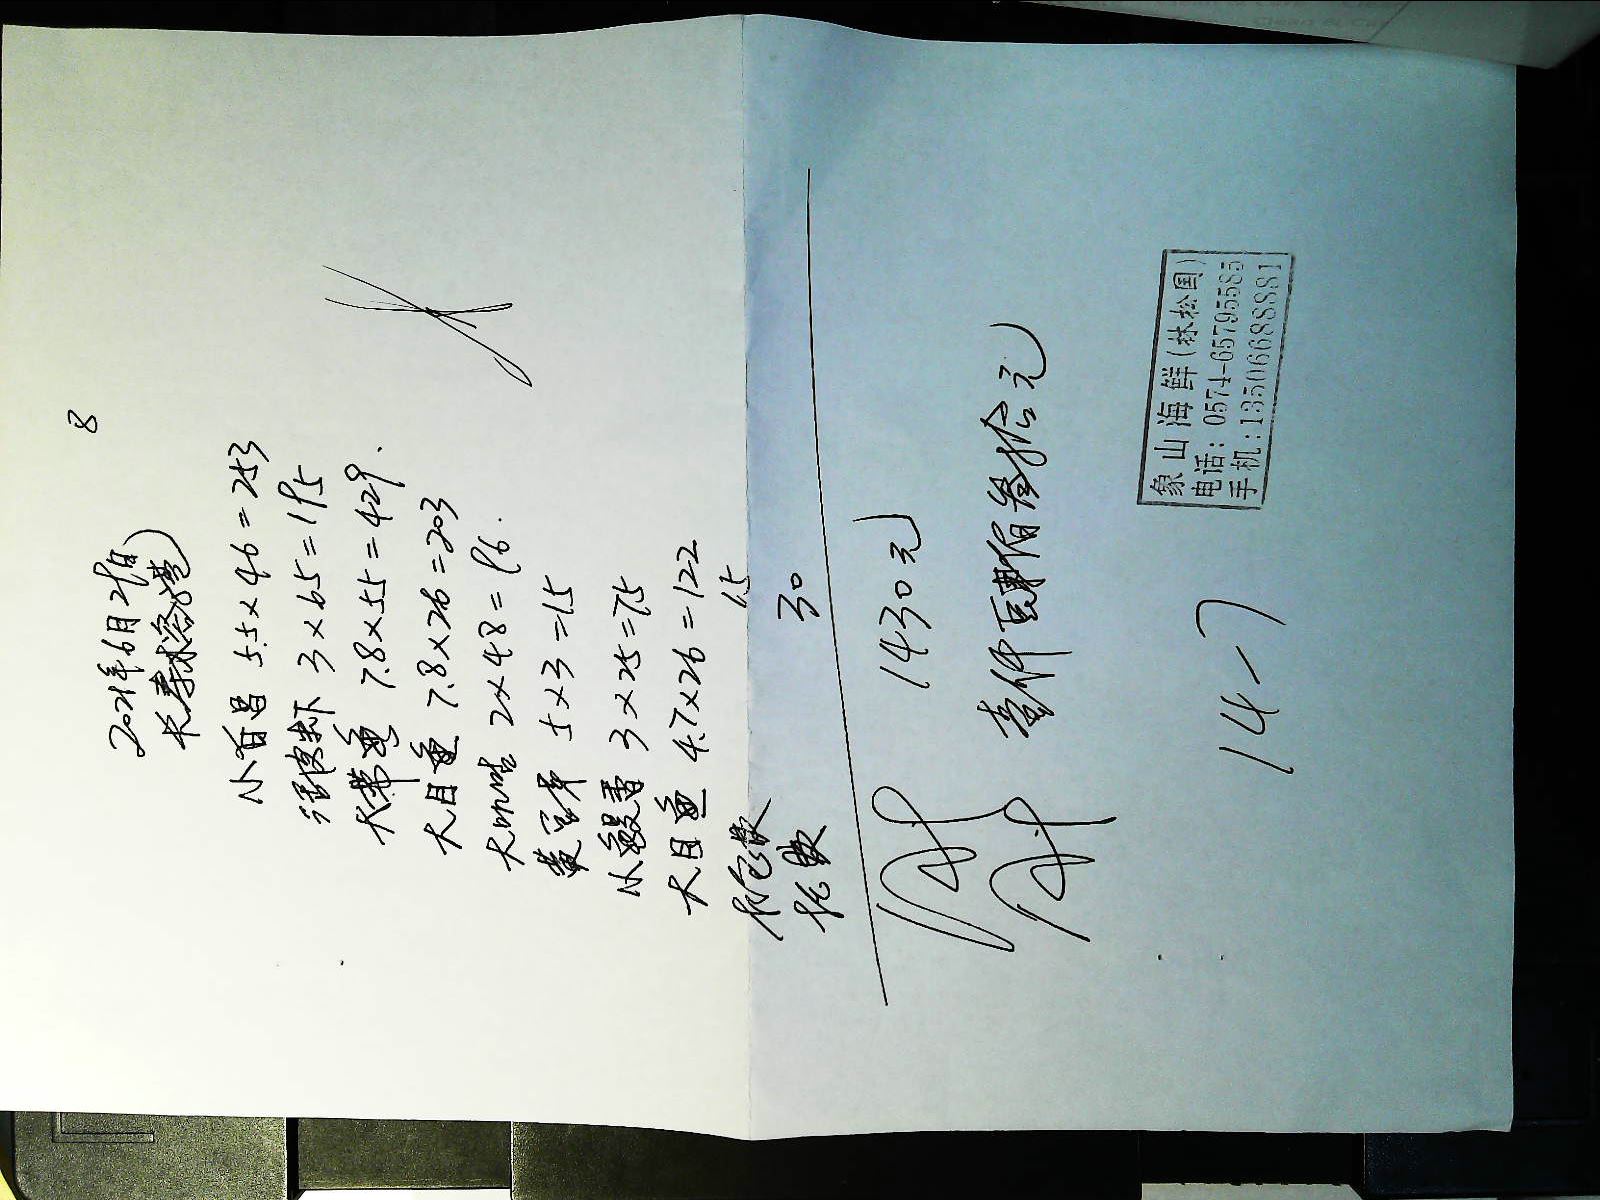 8
2021年6月29日
小白昌 5.5×46=253
3×65=195
大带鱼 7.8×55=429.
大目鱼 7.8×26=203
2×48=96.
5×3=15
小鳗香 3×25=75
大目鱼 4.7×26=122
15
30
1430元
壹仟肆佰叁拾元
象山海鲜(林松国)
电话:0574-65795585
手机:13506688881
14-7